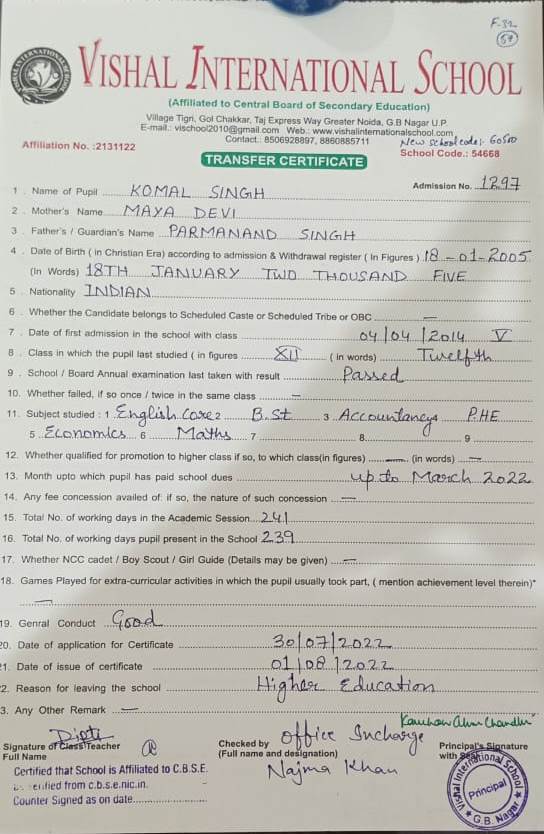 F-32
59
VISHAL INTERNATIONAL SCHOOL
(Affiliated to Central Board of Secondary Education)
Village Tigri, Gol Chakkar, Taj Express Way Greater Noida, G.B Nagar U.P.
E-mail.: vischool2010@gmail.com Web.: www.vishalinternationalschool.com
Contact.: 8506928897, 8860885711
New school code:-
Affiliation No. :2131122
School Code.: 54668
TRANSFER CERTIFICATE
Admission No. 1297
1 . Name of Pupil KOMAL SINGH
2 . Mother's Name MAYA DEVI
3 . Father's / Guardian's Name PARMANAND SINGH
4 . Date of Birth ( in Christian Era) according to admission & Withdrawal register ( In Figures ) 18-01-2005
(In Words) 18TH JANUARY TWO THOUSAND FIVE
5 . Nationality INDIAN
6 . Whether the Candidate belongs to Scheduled Caste or Scheduled Tribe or OBC —
7 . Date of first admission in the school with class 04/04/2014 V
8 . Class in which the pupil last studied ( in figures XII ( in words) Twelfth
9 . School / Board Annual examination last taken with result Passed
10. Whether failed, if so once / twice in the same class —
11. Subject studied : 1 English Core 2 B.St 3 Accountancy 4 P.HE
5 Economics 6 Maths 7 8 9
12. Whether qualified for promotion to higher class if so, to which class(in figures) — (in words) —
13. Month upto which pupil has paid school dues up to March 2022
14. Any fee concession availed of: if so, the nature of such concession —
15. Total No. of working days in the Academic Session 241
16. Total No. of working days pupil present in the School 239
17. Whether NCC cadet / Boy Scout / Girl Guide (Details may be given) —
18. Games Played for extra-curricular activities in which the pupil usually took part, ( mention achievement level therein)*
—
19. Genral Conduct Good
20. Date of application for Certificate 30/07/2022
21. Date of issue of certificate 01/08/2022
2. Reason for leaving the school Higher Education
3. Any Other Remark —
Dipti
Office Incharge
Signature of Class Teacher
Checked by
Principal's Signature
Full Name
(Full name and designation)
with Seal
Najma Khan
Certified that School is Affiliated to C.B.S.E.
verified from c.b.s.e.nic.in.
Counter Signed as on date
Vishal International School
Principal
G.B. Nagar